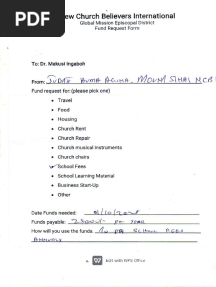 PDF
New Church Believers International
Global Mission Episcopal District
Fund Request Form
To: Dr. Makusi Ingaboh
From: JUDITH BUMA AGINA, MOUNT SINAI NCBI
Fund request for: (please pick one)
• Travel
• Food
• Housing
• Church Rent
• Church Repair
• Church musical instruments
• Church chairs
✓ School Fees
• School Learning Material
• Business Start-Up
• Other
Date Funds needed:
Funds payable: YEAR
How will you use the funds To PAY SCHOOL FEES
Edit with WPS Office